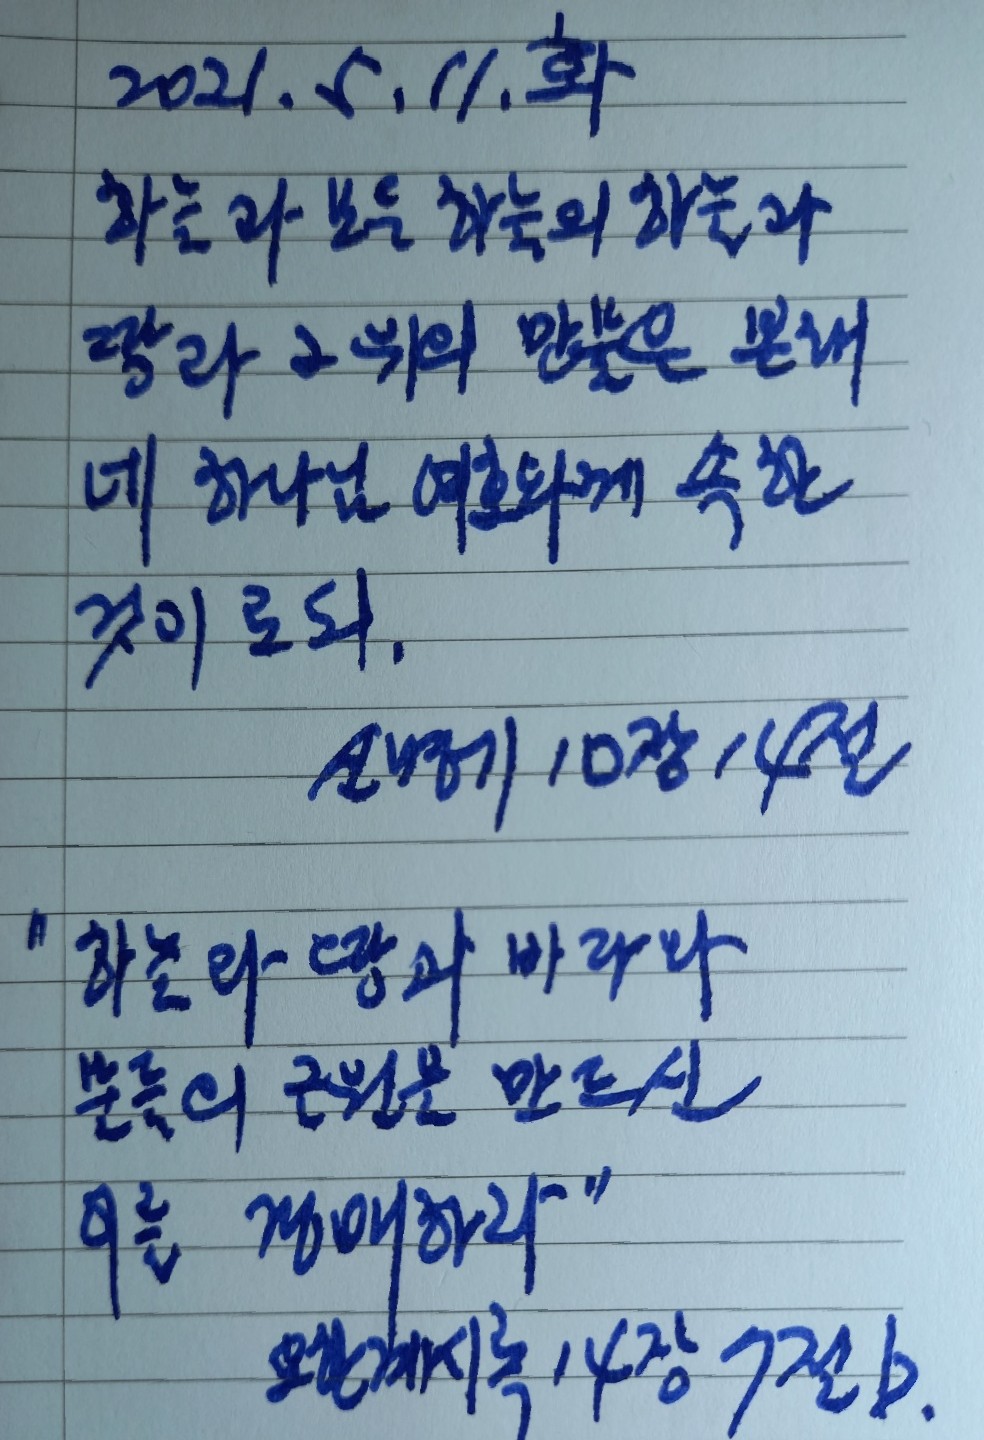 2021. 5. 11. 화
하늘과 모든 하늘의 하늘과
땅과 그 위의 만물은 본래
네 하나님 여호와께 속한
것이로되.
신명기 10장 14절
"하늘과 땅과 바다와
물들의 근원을 만드신
이를 경배하라"
요한계시록 14장 7절 b.